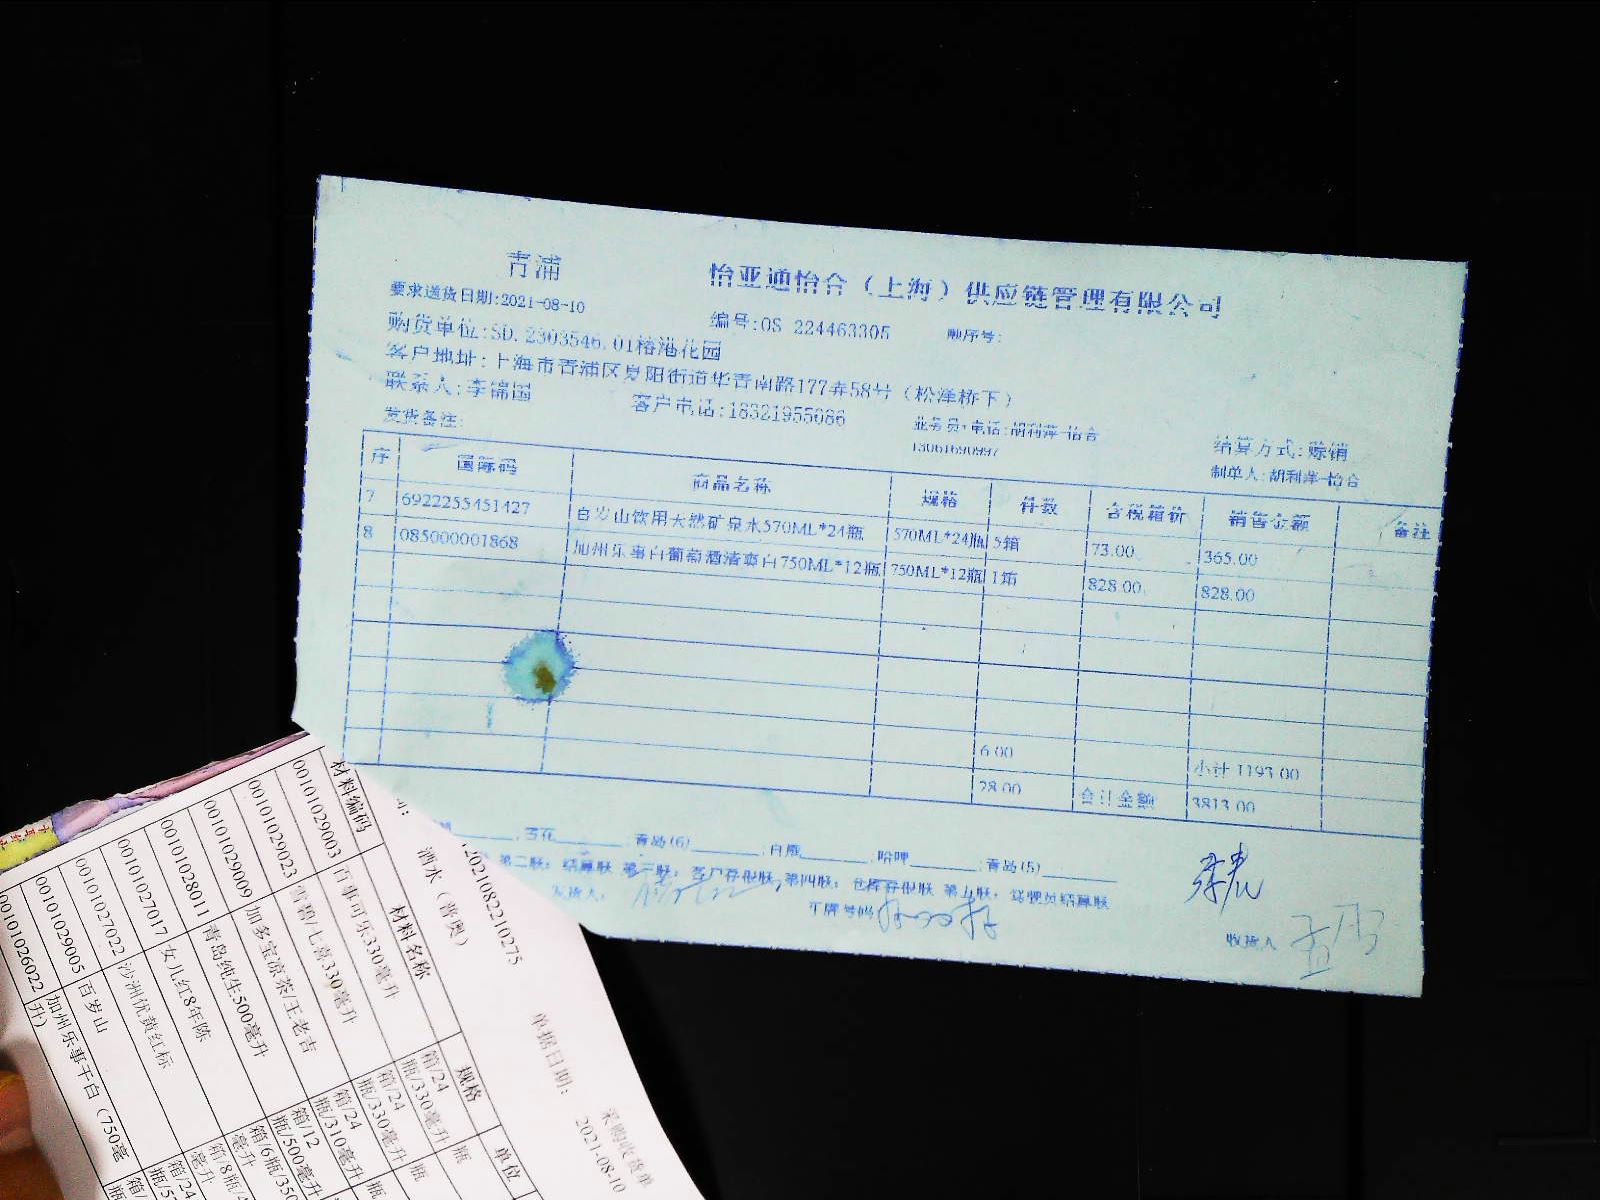 青浦
怡亚通怡合（上海）供应链管理有限公司
要求送货日期:2021-08-10
编号:OS 224463305
顺序号:
购货单位:SD.2303546.01椿港花园
客户地址:上海市青浦区夏阳街道华青南路177弄58号（松泽桥下）
联系人:李锦国
客户电话:18321955086
业务员+电话:胡利萍-怡合
13061690997
结算方式:赊销
发货备注:
制单人:胡利萍-怡合
序 国际码 商品名称 规格 件数 含税箱价 销售金额 备注
7 6922255451427 百岁山饮用天然矿泉水570ML*24瓶 570ML*24瓶 5箱 73.00 365.00
8 085000001868 加州乐事白葡萄酒清爽白750ML*12瓶 750ML*12瓶 1箱 828.00 828.00
6.00 小计 1193.00
28.00 合计金额 3813.00
雪花 青岛(6) 白瓶 哈啤 青岛(5)
第二联：结算联 第三联：客户存根联 第四联：仓库存根联 第五联：驾驶员结算联
发货人:
车牌号码
收货人
采购收货单
单据日期： 2021-08-10
酒水（普奥）
12021082210275
材料编码 材料名称 规格 单位
00101029003 百事可乐330毫升 箱/24瓶/330毫升 瓶
00101029023 雪碧/七喜330毫升 箱/24瓶/330毫升 瓶
00101029009 加多宝凉茶/王老吉 箱/24瓶/310毫升 瓶
00101028011 青岛纯生500毫升 箱/12瓶/500毫升
00101027017 女儿红8年陈 箱/6瓶/350毫升
00101027022 沙洲优黄红标 箱/8瓶/
00101029005 百岁山 箱/24
00101026022 加州乐事干白（750毫升）